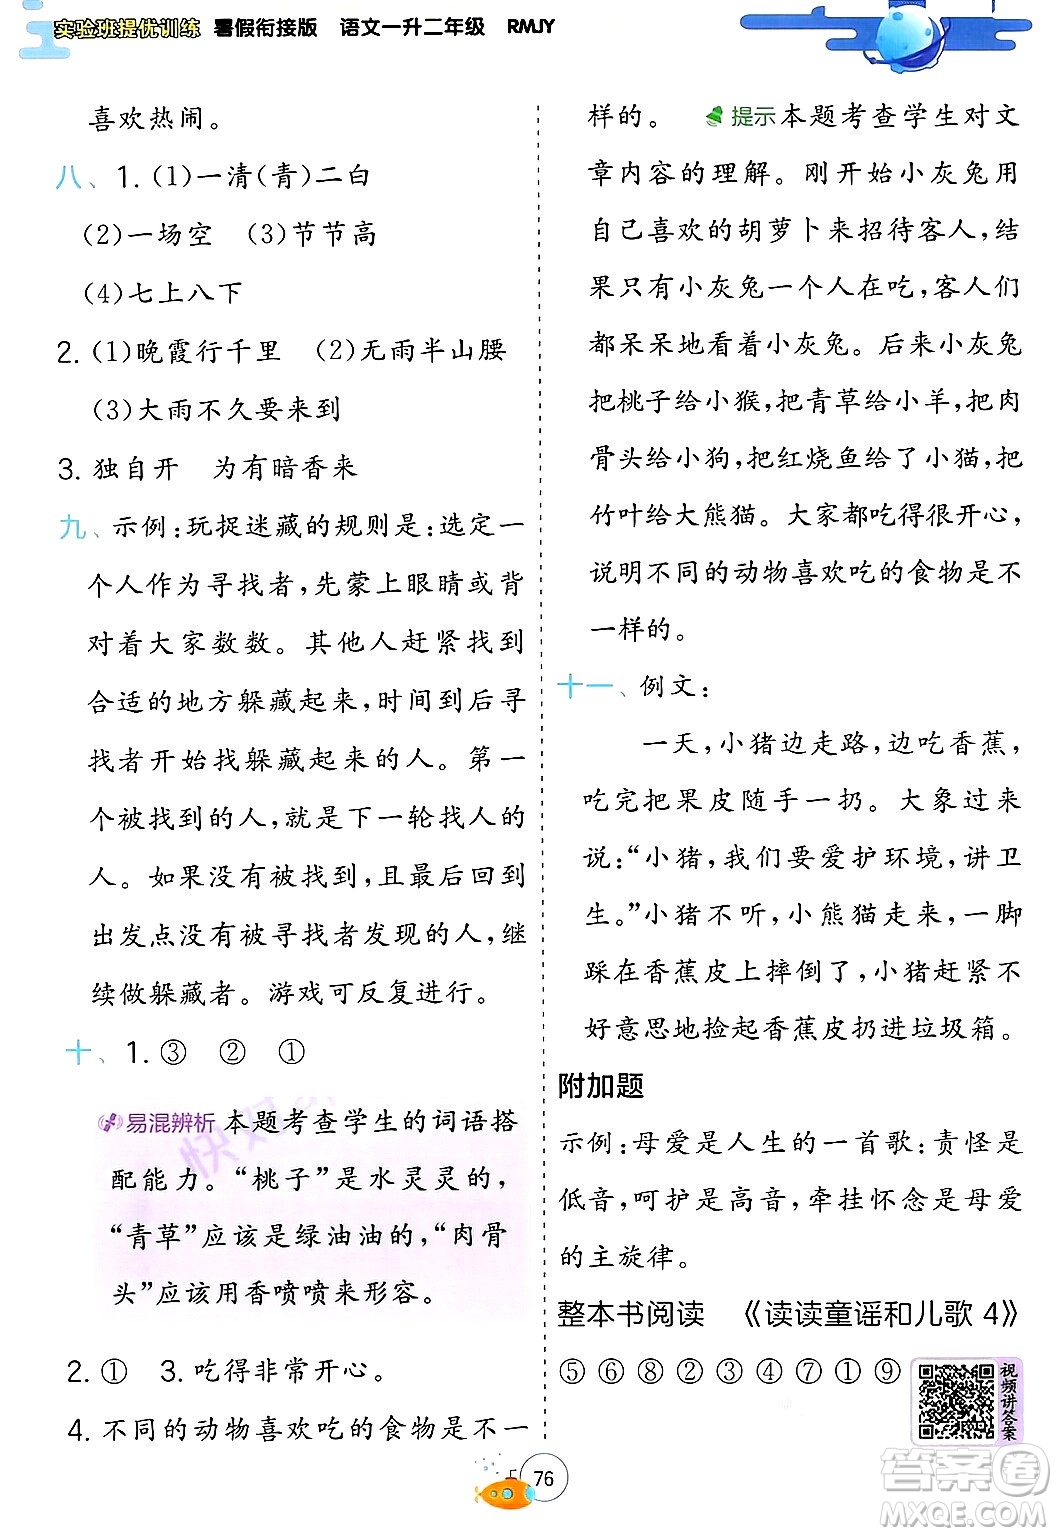 实验班提优训练 暑假衔接版 语文一升二年级 RMJY
喜欢热闹。
八、1. (1)一清(青)二白
(2)一场空 (3)节节高
(4)七上八下
2. (1)晚霞行千里 (2)无雨半山腰
(3)大雨不久要来到
3. 独自开 为有暗香来
九、示例:玩捉迷藏的规则是:选定一
个人作为寻找者,先蒙上眼睛或背
对着大家数数。其他人赶紧找到
合适的地方躲藏起来,时间到后寻
找者开始找躲藏起来的人。第一
个被找到的人,就是下一轮找人的
人。如果没有被找到,且最后回到
出发点没有被寻找者发现的人,继
续做躲藏者。游戏可反复进行。
十、1. ③ ② ①
易混辨析 本题考查学生的词语搭
配能力。“桃子”是水灵灵的,
“青草”应该是绿油油的,“肉骨
头”应该用香喷喷来形容。
2. ① 3. 吃得非常开心。
4. 不同的动物喜欢吃的食物是不一
样的。 提示 本题考查学生对文
章内容的理解。刚开始小灰兔用
自己喜欢的胡萝卜来招待客人,结
果只有小灰兔一个人在吃,客人们
都呆呆地看着小灰兔。后来小灰兔
把桃子给小猴,把青草给小羊,把肉
骨头给小狗,把红烧鱼给了小猫,把
竹叶给大熊猫。大家都吃得很开心,
说明不同的动物喜欢吃的食物是不
一样的。
十一、例文:
一天,小猪边走路,边吃香蕉,
吃完把果皮随手一扔。大象过来
说:“小猪,我们要爱护环境,讲卫
生。”小猪不听,小熊猫走来,一脚
踩在香蕉皮上摔倒了,小猪赶紧不
好意思地捡起香蕉皮扔进垃圾箱。
附加题
示例:母爱是人生的一首歌:责怪是
低音,呵护是高音,牵挂怀念是母爱
的主旋律。
整本书阅读 《读读童谣和儿歌 4》
⑤ ⑥ ⑧ ② ③ ④ ⑦ ① ⑨
视频讲答案
76
答案卷
MXQE.COM